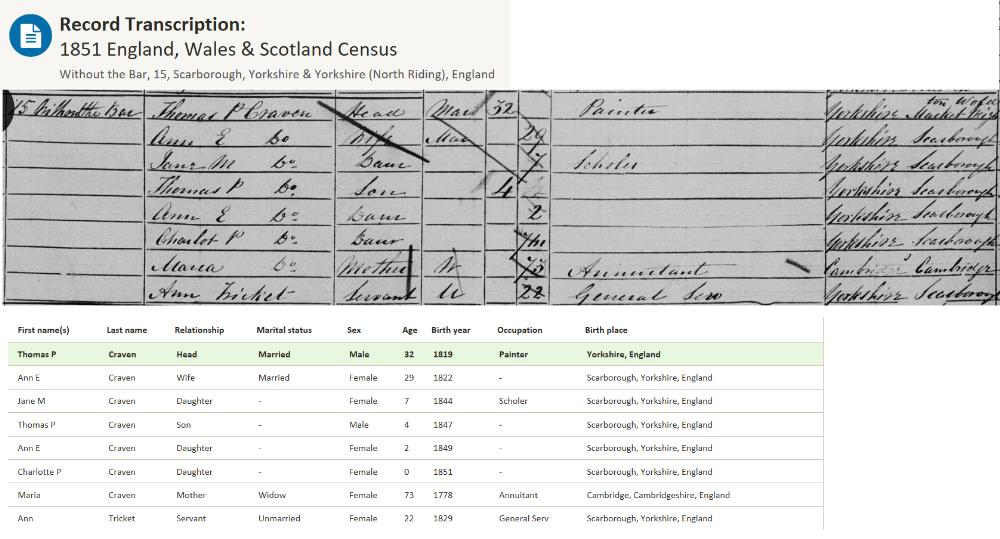 Record Transcription:
1851 England, Wales & Scotland Census
Without the Bar, 15, Scarborough, Yorkshire & Yorkshire (North Riding), England
15 Without the Bar Thomas P Craven Head Mar 32 Painter Yorkshire Market
Ann E Do Wife Mar 29 Yorkshire Scarborough
Jane M Do Daur 7 Scholer Yorkshire Scarborough
Thomas P Do Son 4 Yorkshire Scarborough
Ann E Do Daur 2 Yorkshire Scarborough
Charlot P Do Daur Yorkshire Scarborough
Maria Do Mother W 73 Annuitant Cambridge Cambridge
Ann Tricket Servant U 22 General Serv Yorkshire Scarborough
First name(s) Last name Relationship Marital status Sex Age Birth year Occupation Birth place
Thomas P Craven Head Married Male 32 1819 Painter Yorkshire, England
Ann E Craven Wife Married Female 29 1822 - Scarborough, Yorkshire, England
Jane M Craven Daughter - Female 7 1844 Scholer Scarborough, Yorkshire, England
Thomas P Craven Son - Male 4 1847 - Scarborough, Yorkshire, England
Ann E Craven Daughter - Female 2 1849 - Scarborough, Yorkshire, England
Charlotte P Craven Daughter - Female 0 1851 - Scarborough, Yorkshire, England
Maria Craven Mother Widow Female 73 1778 Annuitant Cambridge, Cambridgeshire, England
Ann Tricket Servant Unmarried Female 22 1829 General Serv Scarborough, Yorkshire, England